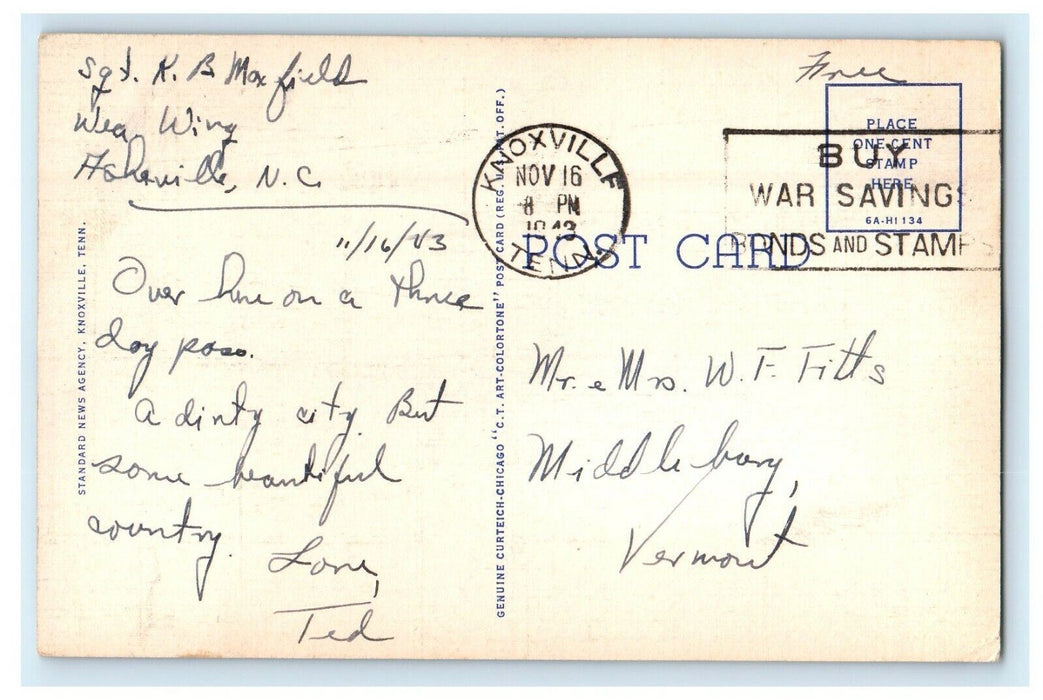 Sgt. K. B Maxfield
Wea. Wing
Asheville, N.C.
11/16/43
Over here on a three
day pass.
A dirty city. But
some beautiful
country.
Love,
Ted
STANDARD NEWS AGENCY, KNOXVILLE, TENN.
GENUINE CURTEICH-CHICAGO "C.T. ART-COLORTONE" POST CARD (REG. U.S. PAT. OFF.)
KNOXVILLE
NOV 16
8 PM
1943
TENN.
Free
PLACE
ONE CENT
STAMP
HERE
6A-H1134
BUY
WAR SAVINGS
BONDS AND STAMPS
POST CARD
Mr. & Mrs. W. F. Titts
Middlebury,
Vermont